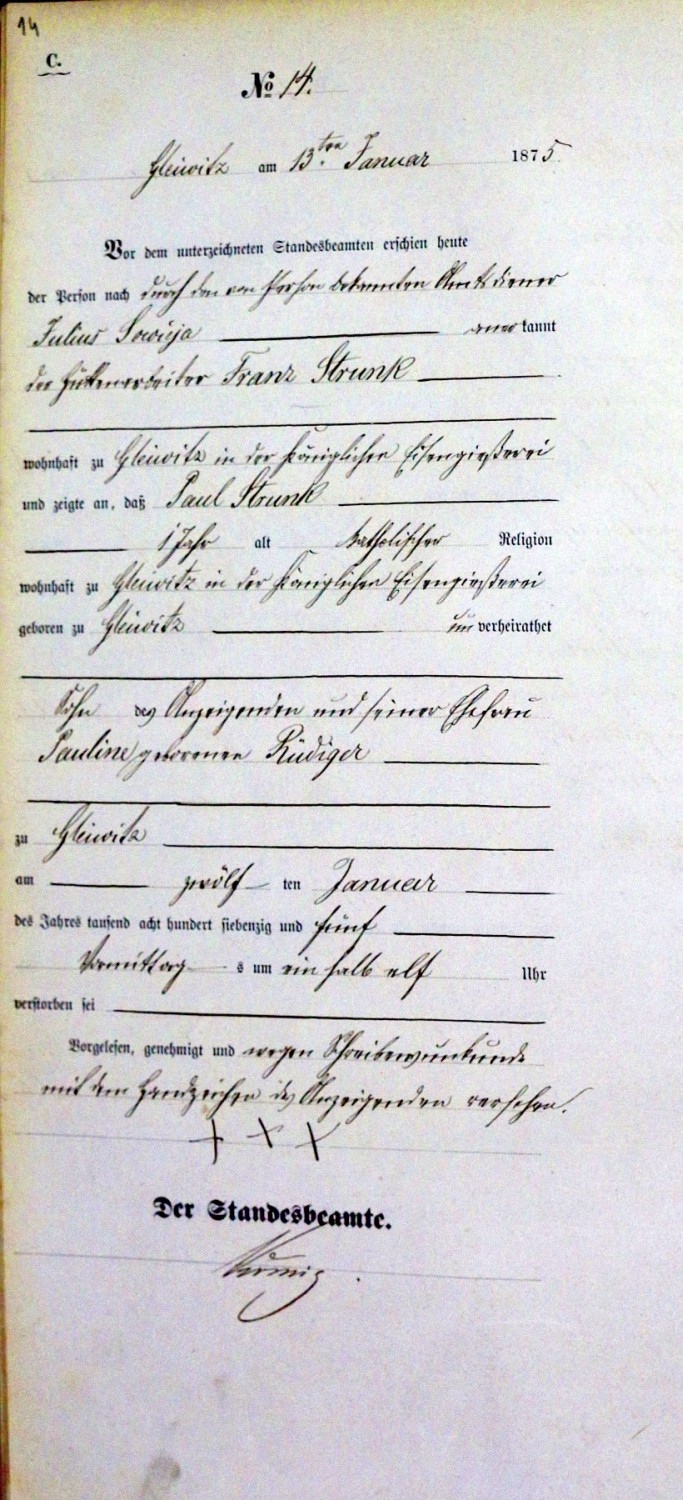 14
C.
No 14.
Gleiwitz am 13.ten Januar 1875.
Vor dem unterzeichneten Standesbeamten erschien heute
der Person nach durch den von Person bekannten Amtsdiener
Julius Sowieja anerkannt
der Hüttenarbeiter Franz Strunk
wohnhaft zu Gleiwitz in der Königlichen Eisengießerei
und zeigte an, daß Paul Strunk
1 Jahr alt katholischer Religion
wohnhaft zu Gleiwitz in der Königlichen Eisengießerei
geboren zu Gleiwitz unverheirathet
Sohn des Anzeigenden und seiner Ehefrau
Pauline geborenen Rüdiger
zu Gleiwitz
am zwölf ten Januar
des Jahres tausend acht hundert siebenzig und fünf
Vormittag s um ein halb elf Uhr
verstorben sei
Vorgelesen, genehmigt und wegen Schreibensunkunde
mit dem Handzeichen des Anzeigenden versehen.
+ + +
Der Standesbeamte.